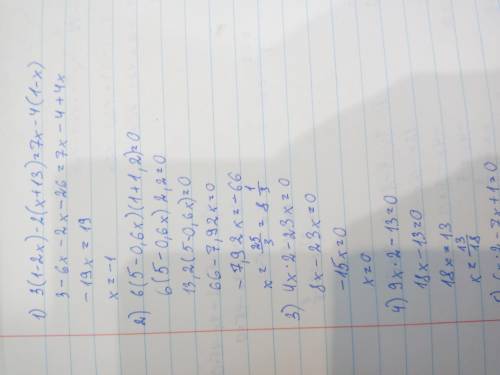 1) 3(1-2x)-2(x+13)=7x-4(1-x)
3-6x-2x-26=7x-4+4x
-19x=19
x=-1
2) 6(5-0,6x)(1+1,2)=0
6(5-0,6x)2,2=0
13,2(5-0,6x)=0
66-7,92x=0
-7,92x=-66
x=25/3=8 1/3
3) 4x·2-23x=0
8x-23x=0
-15x=0
x=0
4) 9x·2-13=0
18x-13=0
18x=13
x=13/18